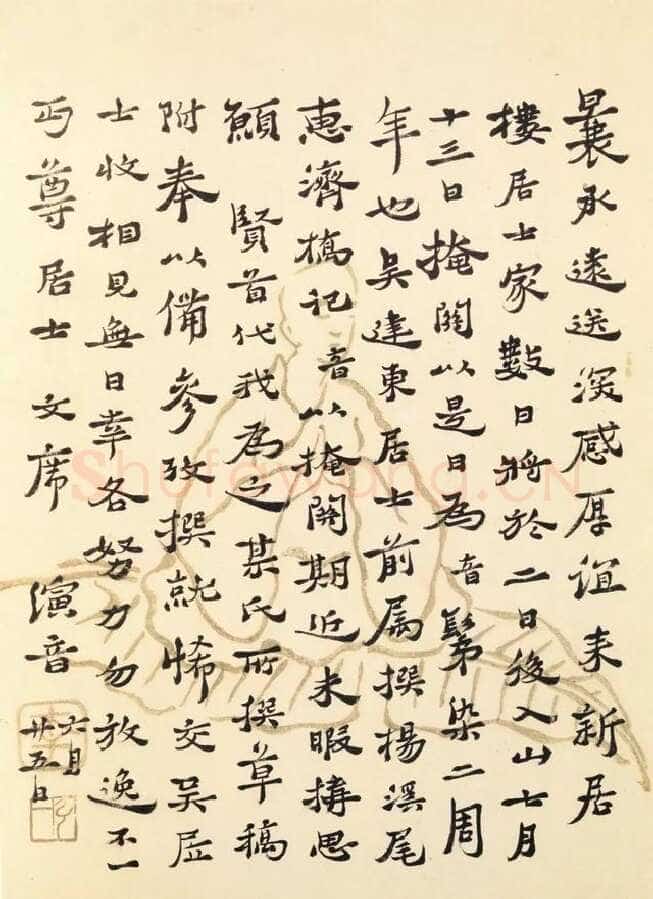 曩承遠送深感厚誼来新居
樓居士家數日將於二日後入山七月
十三日掩關以是日為音鬀染二周
年也吴建東居士前属撰楊溪尾
惠濟橋記音以掩關期近未暇搆思
願賢首代我為之某氏所撰草稿
附奉以備參攷撰就悕交吴居
士收相見無日幸各努力勿放逸不一
丏尊居士文席演音
六月
廿五日
ShufaWang.CN